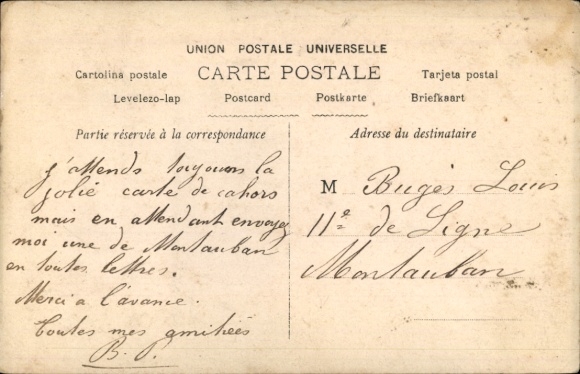 UNION POSTALE UNIVERSELLE
CARTE POSTALE
Cartolina postale
Tarjeta postal
Levelezo-lap
Postcard
Postkarte
Briefkaart
Partie réservée à la correspondance
j'attends toujours la
jolie carte de cahors
mais en attendant envoyez
moi une de Montauban
en toutes lettres.
Merci a l'avance.
Toutes mes amitiées
B. P.
Adresse du destinataire
M Bugès Louis
11e de Ligne
Montauban